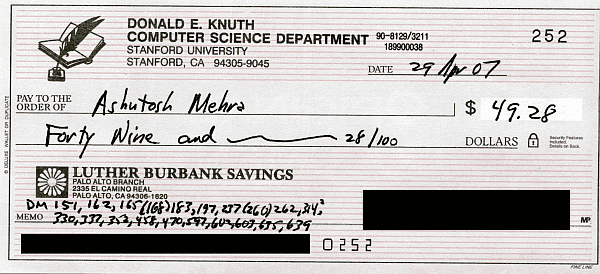 DONALD E. KNUTH
COMPUTER SCIENCE DEPARTMENT 90-8129/3211 252
STANFORD UNIVERSITY 189900038
STANFORD, CA 94305-9045
DATE 29 Apr 07
PAY TO THE
ORDER OF Ashutosh Mehra $ 49.28
Forty Nine and 28/100 DOLLARS
Security Features
Included.
Details on Back.
LUTHER BURBANK SAVINGS
PALO ALTO BRANCH
2335 EL CAMINO REAL
PALO ALTO, CA 94306-1620
DM 151, 162, 165 (168) 183, 197, 237 (260) 262, 314²
MEMO 330, 337, 353, 458, 470, 597, 602, 603, 635, 639
MP
0252
FINE LINE
© DELUXE WALLET OR DUPLICATE